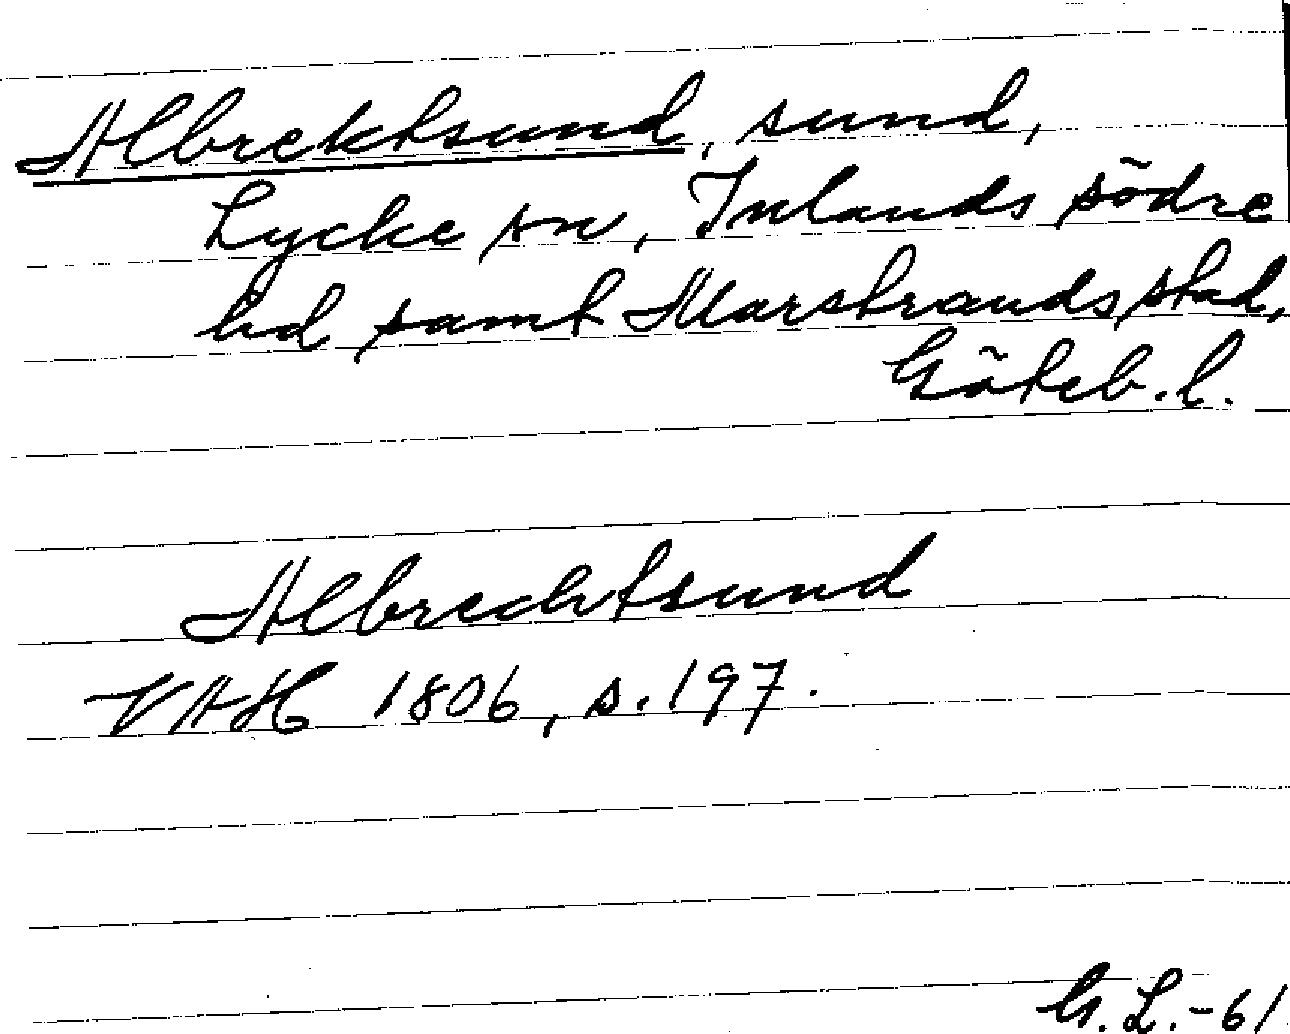 Albrektsund, sund,
Lycke sn, Inlands södre
hd samt Marstrands stad,
Göteb. l.
Albrechtsund
VAH 1806, s. 197.
G. L. -61.